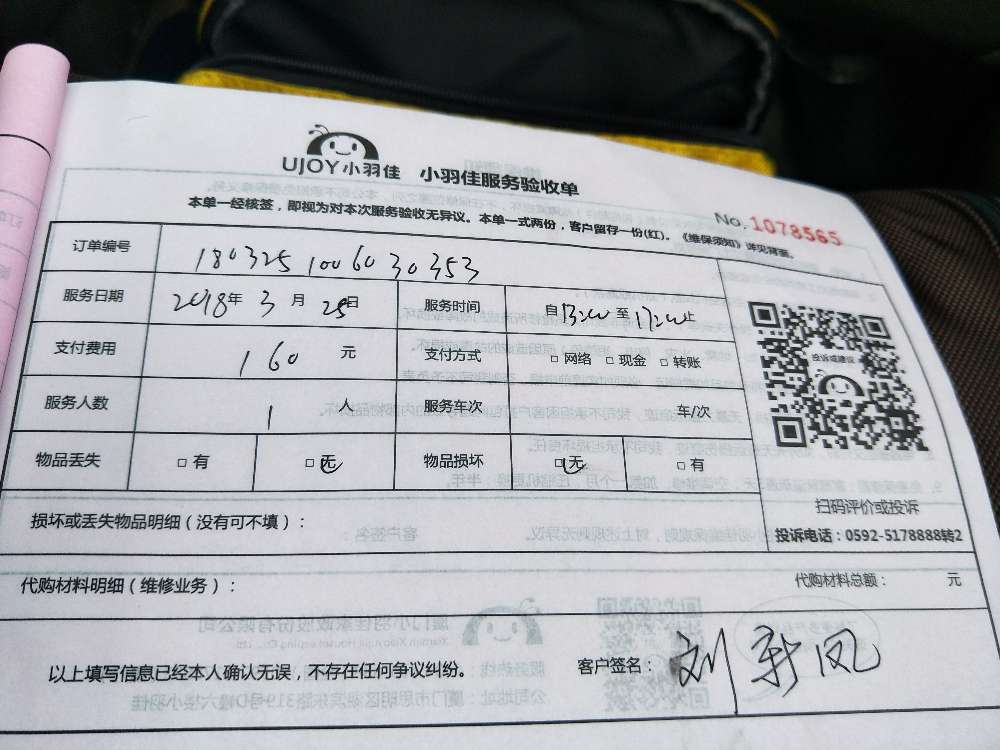 UJOY小羽佳 小羽佳服务验收单
No. 1078565
本单一经核签，即视为对本次服务验收无异议。本单一式两份，客户留存一份(红)。《维保须知》详见背面。
订单编号 1803251006030353
服务日期 2018年 3 月 25日 服务时间 自13:00至17:00止
支付费用 160 元 支付方式 □网络 □现金 □转账
服务人数 1 人 服务车次 车/次
物品丢失 □有 □无 物品损坏 □无 □有
投诉或建议
扫码评价或投诉
投诉电话：0592-5178888转2
损坏或丢失物品明细（没有可不填）：
代购材料明细（维修业务）： 代购材料总额： 元
以上填写信息已经本人确认无误，不存在任何争议纠纷。 客户签名：刘新凤